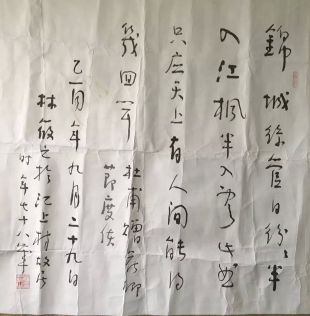 錦城絲管日紛〻半
入江楓半入雲此曲
只应天上有人间能得
幾回闻
杜甫赠花卿
節度使
年九月二十九日
林筱之於江上村故居
时年七十八